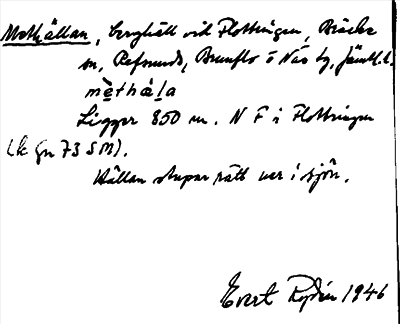 Methällan, berghäll vid Flottringen, Bräcke
sn, Refsunds, Brunflo o Näs tg, Jämtl. l.
mèthàla
Ligger 850 m. N F i Flottringen
(k gn 73 SM).
Hällan stupar rätt ner i sjön.
Evert Rydén 1946